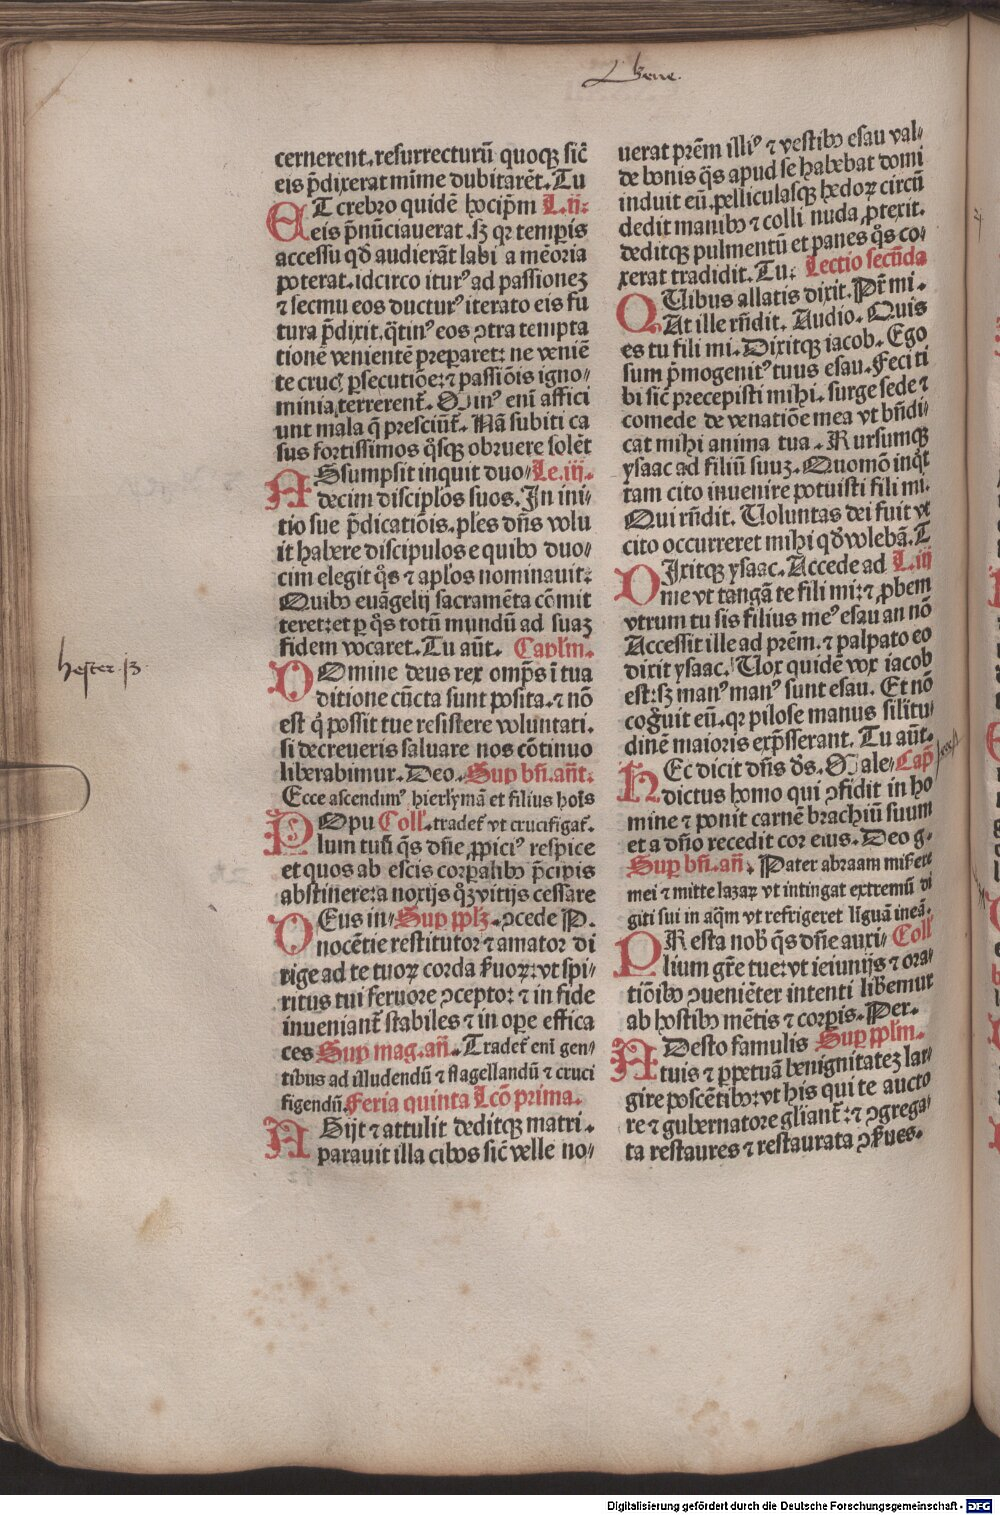 cernerent.resurrecturū quoqꝫ sic̄
eis p̄dixerat mīme dubitarēt.Tu
ET crebro quidē hoc ip̄m L.ij:
eis p̄nūciauerat.sꝫ qꝛ temp̲is
accessu qd̄ audierāt labi a mēoria
poterat.idcirco iturꝰ ad passionez
⁊ secum eos ducturꝰ iterato eis fu
tura p̄dixit.q̄tinꝰ eos ꝯtra tempta
tionē venientē prep̲aret: ne veniē
te cruc̨ p̲secutiōe:⁊ passiōis igno/
minia terrerent̄.Minꝰ eni affici
unt mala q̄ presciūt̄.Nā subiti ca
sus fortissimos q̊sqꝫ obruere solēt
ASsumpsit inquit duo/Le.iij.
decim disciplos suos.In ini/
tio sue p̄dicatiōis.ples dn̄s volu
it habere discipulos e quibꝰ duo/
cim elegit q̊s ⁊ aplos nominauit:
Quibꝰ euāgelij sacramēta cōmit
teret:et p̲ q̊s totū mundū ad suaꝫ
fidem vocaret.Tu aūt. Caplm.
DOmine deus rex omp̄s ī tua
ditione cūcta sunt posita.⁊ nō
est q̇ possit tue resistere voluntati.
si decreueris saluare nos cōtinuo
liberabimur.Deo.Sup bn̄.an̄t:
Ecce ascendimꝰ hierlymā et filius hoīs
POpu Coll.tradet̄ vt crucifigat̄.
lum tuū q̄s dn̄e ꝓpiciꝰ respice
et quos ab escis corp̲alibꝰ p̄cipis
abstinere:a noxijs qꝫ vitijs cessare
DEus in/Sup pp̄lꝫ.ꝯcede P.
nocētie restitutor ⁊ amator di
rige ad te tuoꝝ corda f̄uoꝝ:vt spi/
ritus tui feruore ꝯcepto:⁊ in fide
inueniant̄ stabiles ⁊ in op̲e effica
ces Sup mag.an̄.Tradet̄ enī gen/
tibus ad illudendū ⁊ flagellandū ⁊ cruci
figendū.Feria quinta Lcō prima.
ABijt ⁊ attulit deditqꝫ matri.
parauit illa cibos sic̄ velle no/
Lhene.
uerat prēm illiꝰ ⁊ vestibꝰ esau val/
de bonis q̊s apud se habebat domi
induit eū.pelliculasqꝫ hedoꝝ circū
dedit manibꝰ ⁊ colli nuda ꝓtexit.
deditqꝫ pulmentū et panes q̊s co/
xerat tradidit.Tu: Lectio secūda
QUibus allatis dixit.Pr̄ mi.
At ille rn̄dit. Audio.Quis
es tu fili mi.Dixitqꝫ iacob.Ego
sum p̄mogenitꝰ tuus esau.Feci ti
bi sic̄ precepisti mihi.surge sede ⁊
comede de venatiōe mea vt bn̄di/
cat mihi anima tua.Rursumqꝫ
ysaac ad filiū suuꝫ.Quomō inq̇t
tam cito inuenire potuisti fili mi.
Qui rn̄dit. Voluntas dei fuit vt
cito occurreret mihi qd̄ volebā.T
DIxitqꝫ ysaac.Accede ad L.iij
me vt tangā te fili mi:⁊ ꝓbem
vtrum tu sis filius meꝰ esau an nō
Accessit ille ad prēm.⁊ palpato eo
dixit ysaac.Vox quidē vox iacob
est:sꝫ manꝰ manꝰ sunt esau. Et nō
cog̊uit eū.qꝛ pilose manus silitu/
dinē maioris exp̄sserant.Tu aūt.
HEc dicit dn̄s d̄s.Male/Cap̄
dictus homo qui ꝯfidit in ho
mine ⁊ ponit carnē brachiū suum
et a dn̄o recedit cor eius.Deo g.
Sup bn̄.an̄.Pater abraam mis̄ere
mei ⁊ mitte lazaꝝ vt intingat extremū di
giti sui in aq̄m vt refrigeret liguā meā.
PResta nob̄ q̄s dn̄e auxi/Coll
lium gr̄e tue:vt ieiunijs ⁊ ora/
tiōibꝰ ꝯueniēter intenti lib̄emur
ab hostibꝰ mētis ⁊ corp̲is.Per.
ADesto famulis Sup pp̄lm.
tuis ⁊ p̲petuā benignitatez lar/
gire poscētibꝰ:vt his qui te aucto
re ⁊ gubernatore gliant̄:⁊ ꝯgrega/
ta restaures ⁊ restaurata ꝯf̄ues.
hester.13
Digitalisierung gefördert durch die Deutsche Forschungsgemeinschaft - DFG